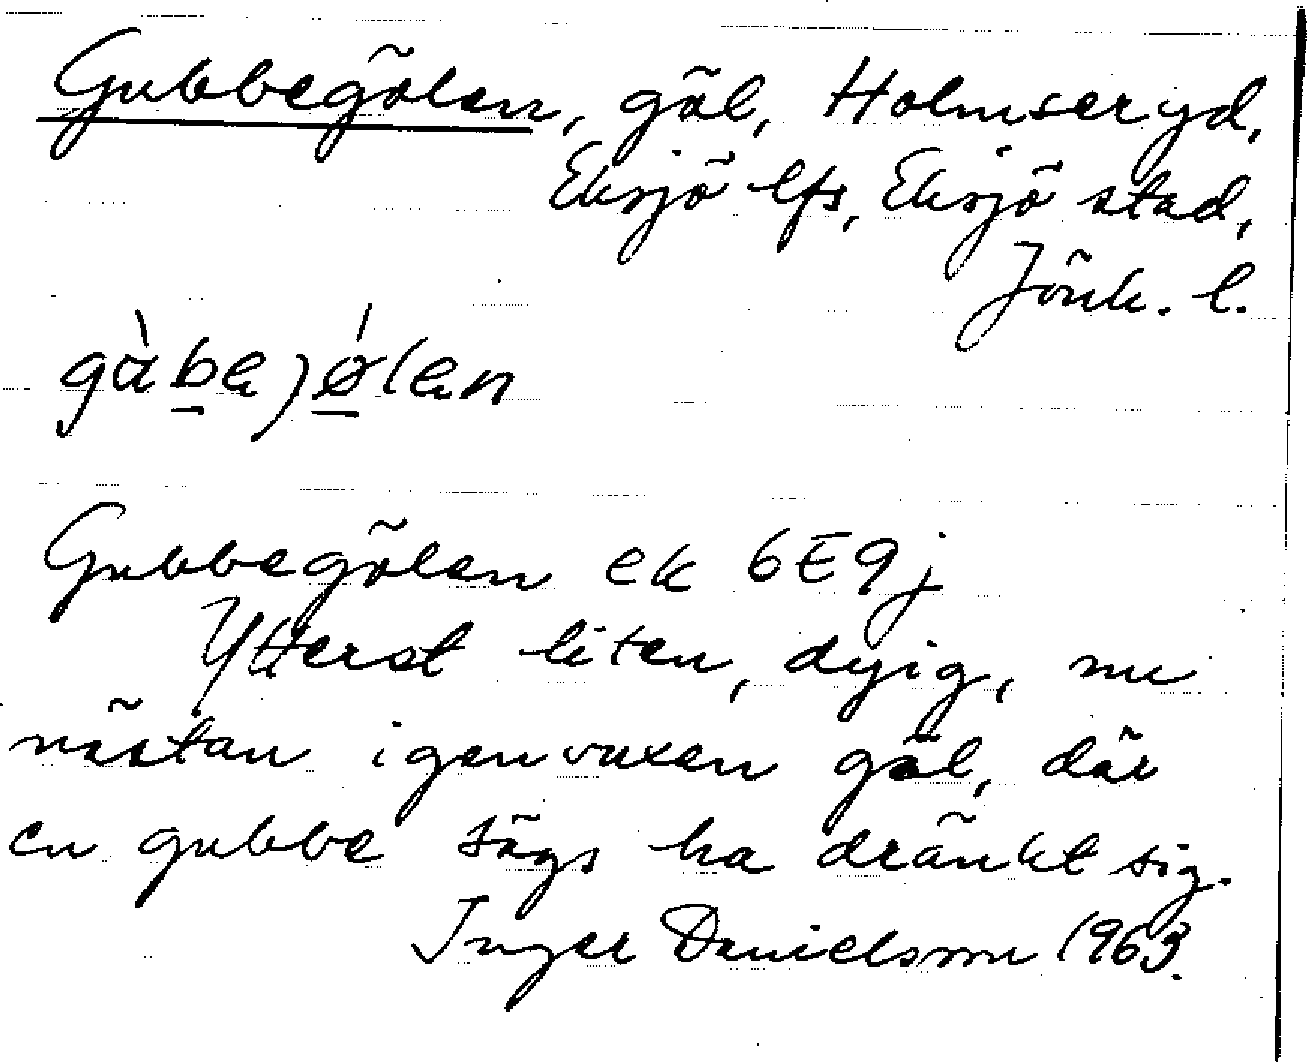 Gubbegölen, göl, Holmseryd,
Eksjö lfs, Eksjö stad,
Jönk. l.
gàbejølen
Gubbegölen ek 6E9j
Ytterst liten, dyig, nu
nästan igenvuxen göl, där
en gubbe sägs ha dränkt sig.
Inger Danielsson 1963.